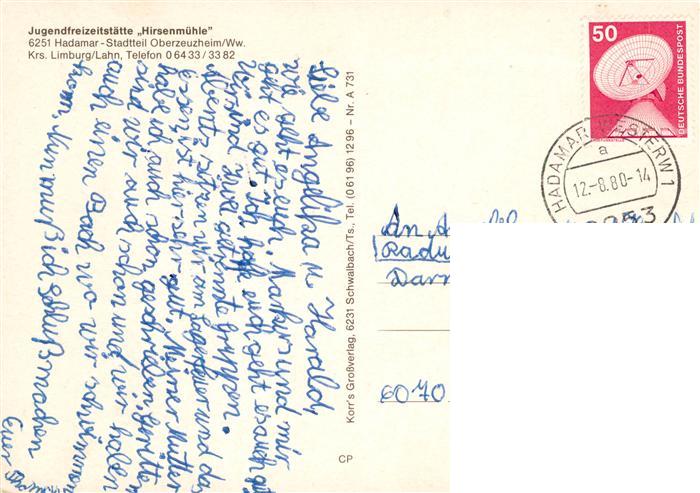 Jugendfreizeitstätte „Hirsenmühle"
6251 Hadamar - Stadtteil Oberzeuzheim/Ww.
Krs. Limburg/Lahn, Telefon 0 64 33 / 33 82
Liebe Angelika u. Harald,
wie geht es euch. Markus und mir
geht es gut. Ich hoffe euch geht es auch gut
Wir sind zwei getrennte Gruppen.
Abentz sitzen wir am Lagerfeuer und das
Essen ist hir sehr gut. Meiner Mutter
habe ich auch schon geschriben. geritten
sind wir auch schon und wir haben
auch einen Bach wo wir schwimmen
kann. Nun muß ich Schluß machen
Euer
Korr's Großverlag, 6231 Schwalbach/Ts., Tel. (0 61 96) 12 96 – Nr. A 731
CP
50
DEUTSCHE BUNDESPOST
HADAMAR WESTERW 1
a
12.-8.80-14
6253
An
Radu
Darm
6070